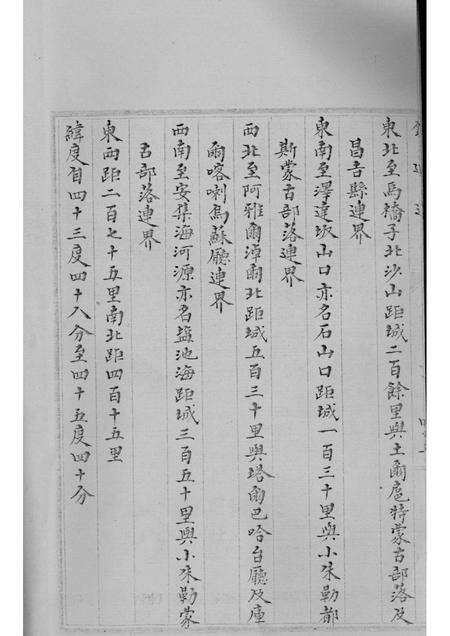 東北至馬橋子北沙山距城二百餘里與土爾扈特蒙古部落及
昌吉縣連界
東南至澤達坂山口亦名石山口距城一百三十里與小朱勒都
斯蒙古部落連界
西北至阿雅爾淖爾北距城五百三十里與塔爾巴哈台廳及庫
爾喀喇烏蘇廳連界
西南至安集海河源亦名盐池海距城三百五十里與小朱勒蒙
古部落連界
東西距二百七十五里南北距四百十五里
緯度自四十三度四十八分至四十五度四十分